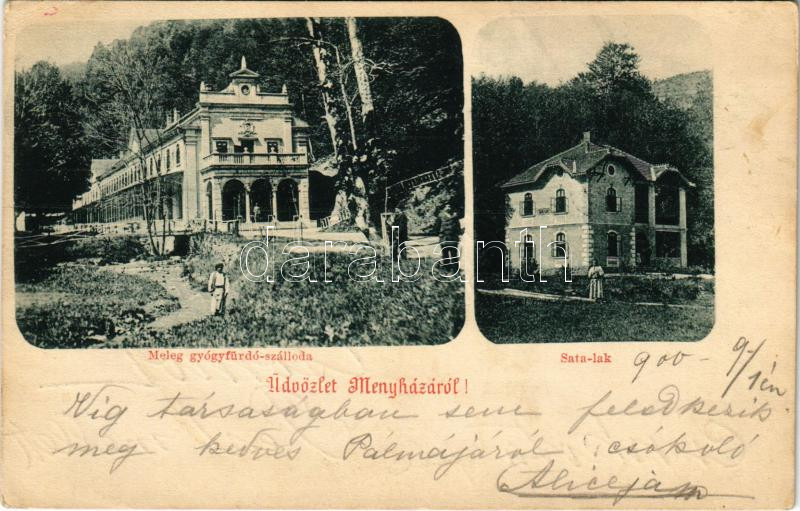 darabanth
Meleg gyógyfürdő-szálloda
Sata-lak
Üdvözlet Menyházáról!
900
Víg társaságban sem feledkezik
meg kedves Pálmájáról csókoló
Aliceja